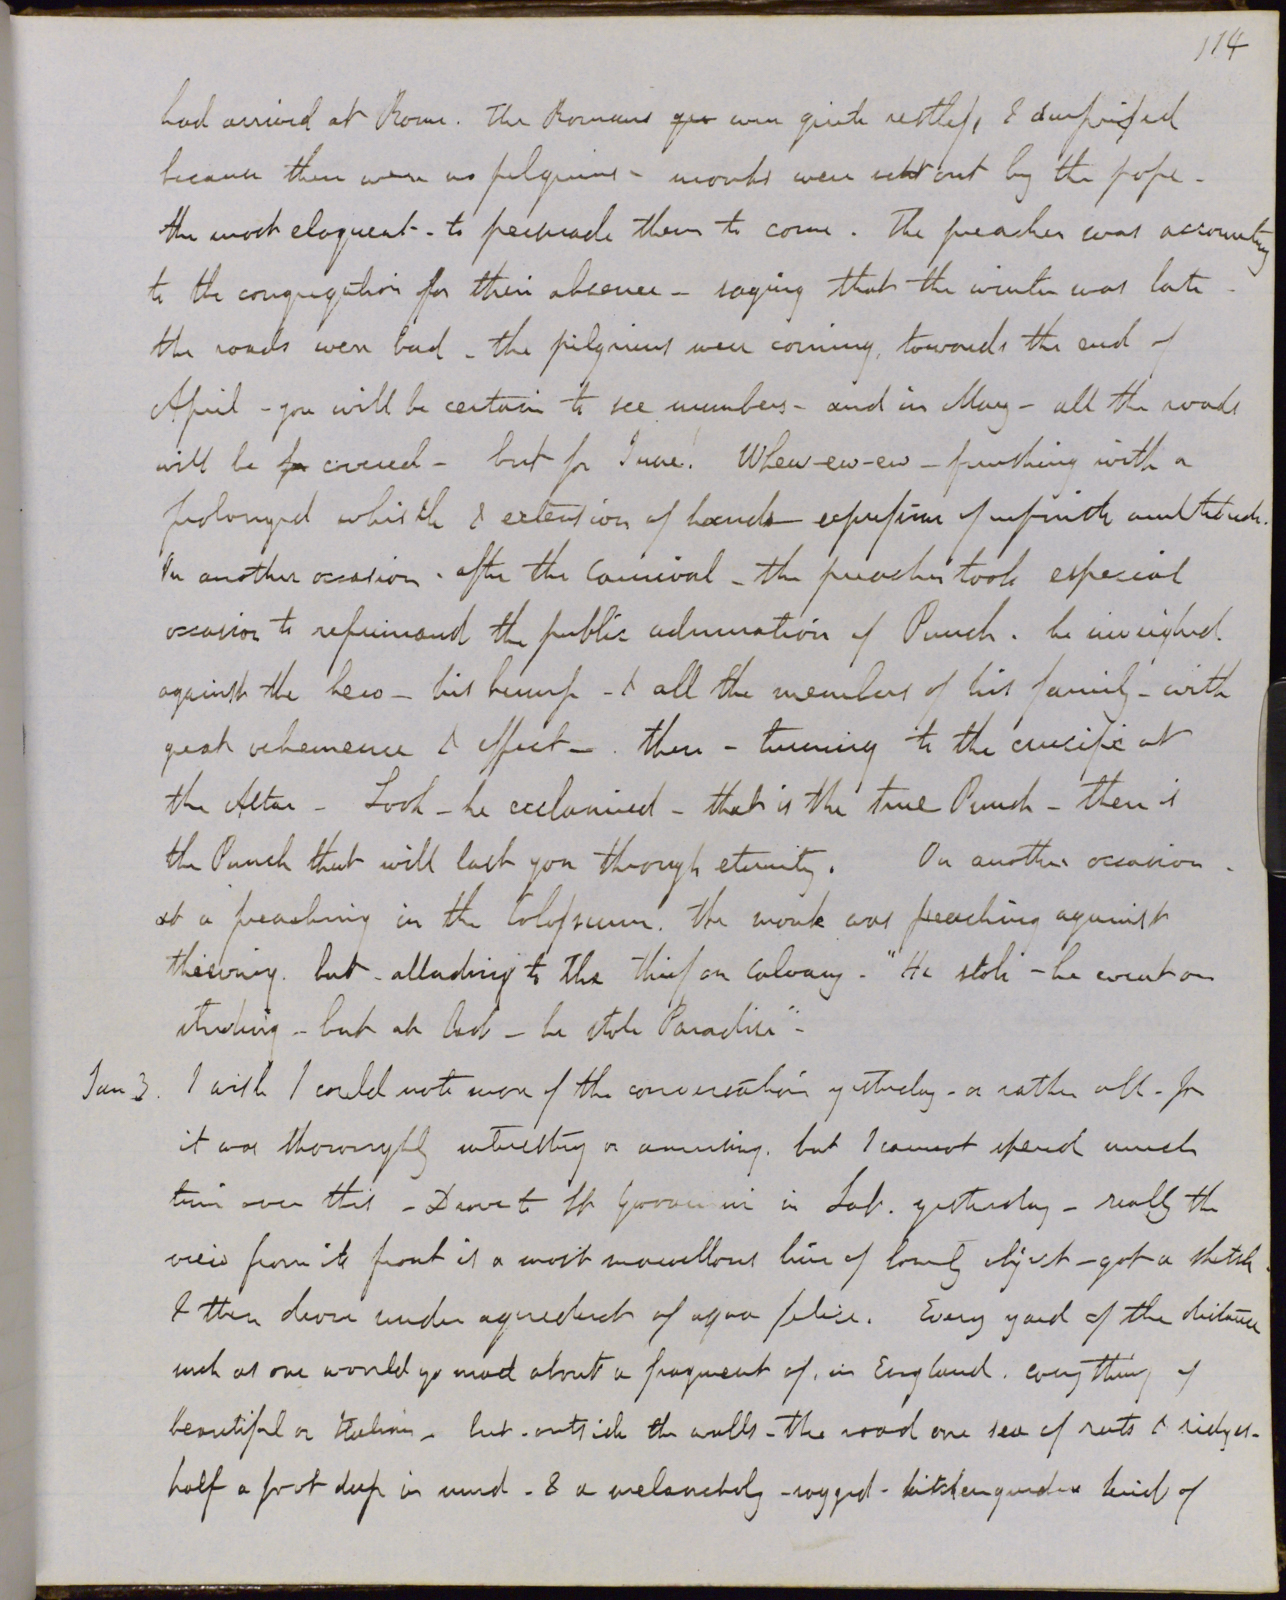 114
had arrived at Rome. The Romans were quite restless & surprised
because there were no pilgrims - monks were sent out by the pope -
the most eloquent - to persuade them to come. The preacher was accounting
to the congregation for their absence - saying that the winter was late -
the roads were bad - the pilgrims were coming, towards the end of
April - you will be certain to see numbers - and in May - all the roads
will be covered - but for June! Whew-ew-ew - finishing with a
prolonged whistle & extension of hands expressive of infinite multitude.
On another occasion - after the Carnival - the preacher took especial
occasion to reprimand the public admiration of Punch. he inveighed
against the hero - his hump - & all the members of his family - with
great vehemence & effect - . then - turning to the crucifix at
the Altar - Look - he exclaimed - that is the true Punch - there is
the Punch that will last you through eternity. On another occasion -
at a preaching in the Colosseum. the monk was preaching against
thieving. but - alluding to the thief on Calvary - "He stole - he went on
stealing - but at last - he stole Paradise" -
Jan 3. I wish I could note more of the conversation yesterday - or rather all - for
it was thoroughly interesting or amusing. but I cannot spend much
time over this - Drove to St Giovanni in Lat. yesterday - really the
view from its front is a most marvellous line of lovely object - got a sketch.
& then drove under aqueduct of aqua felice. Every yard of the distance
such as one would go mad about a fragment of, in England. everything of
beautiful or Italian - but - outside the walls - the road one sea of ruts & ridges -
half a foot deep in mud - & a melancholy - ragged - kitchengarden kind of